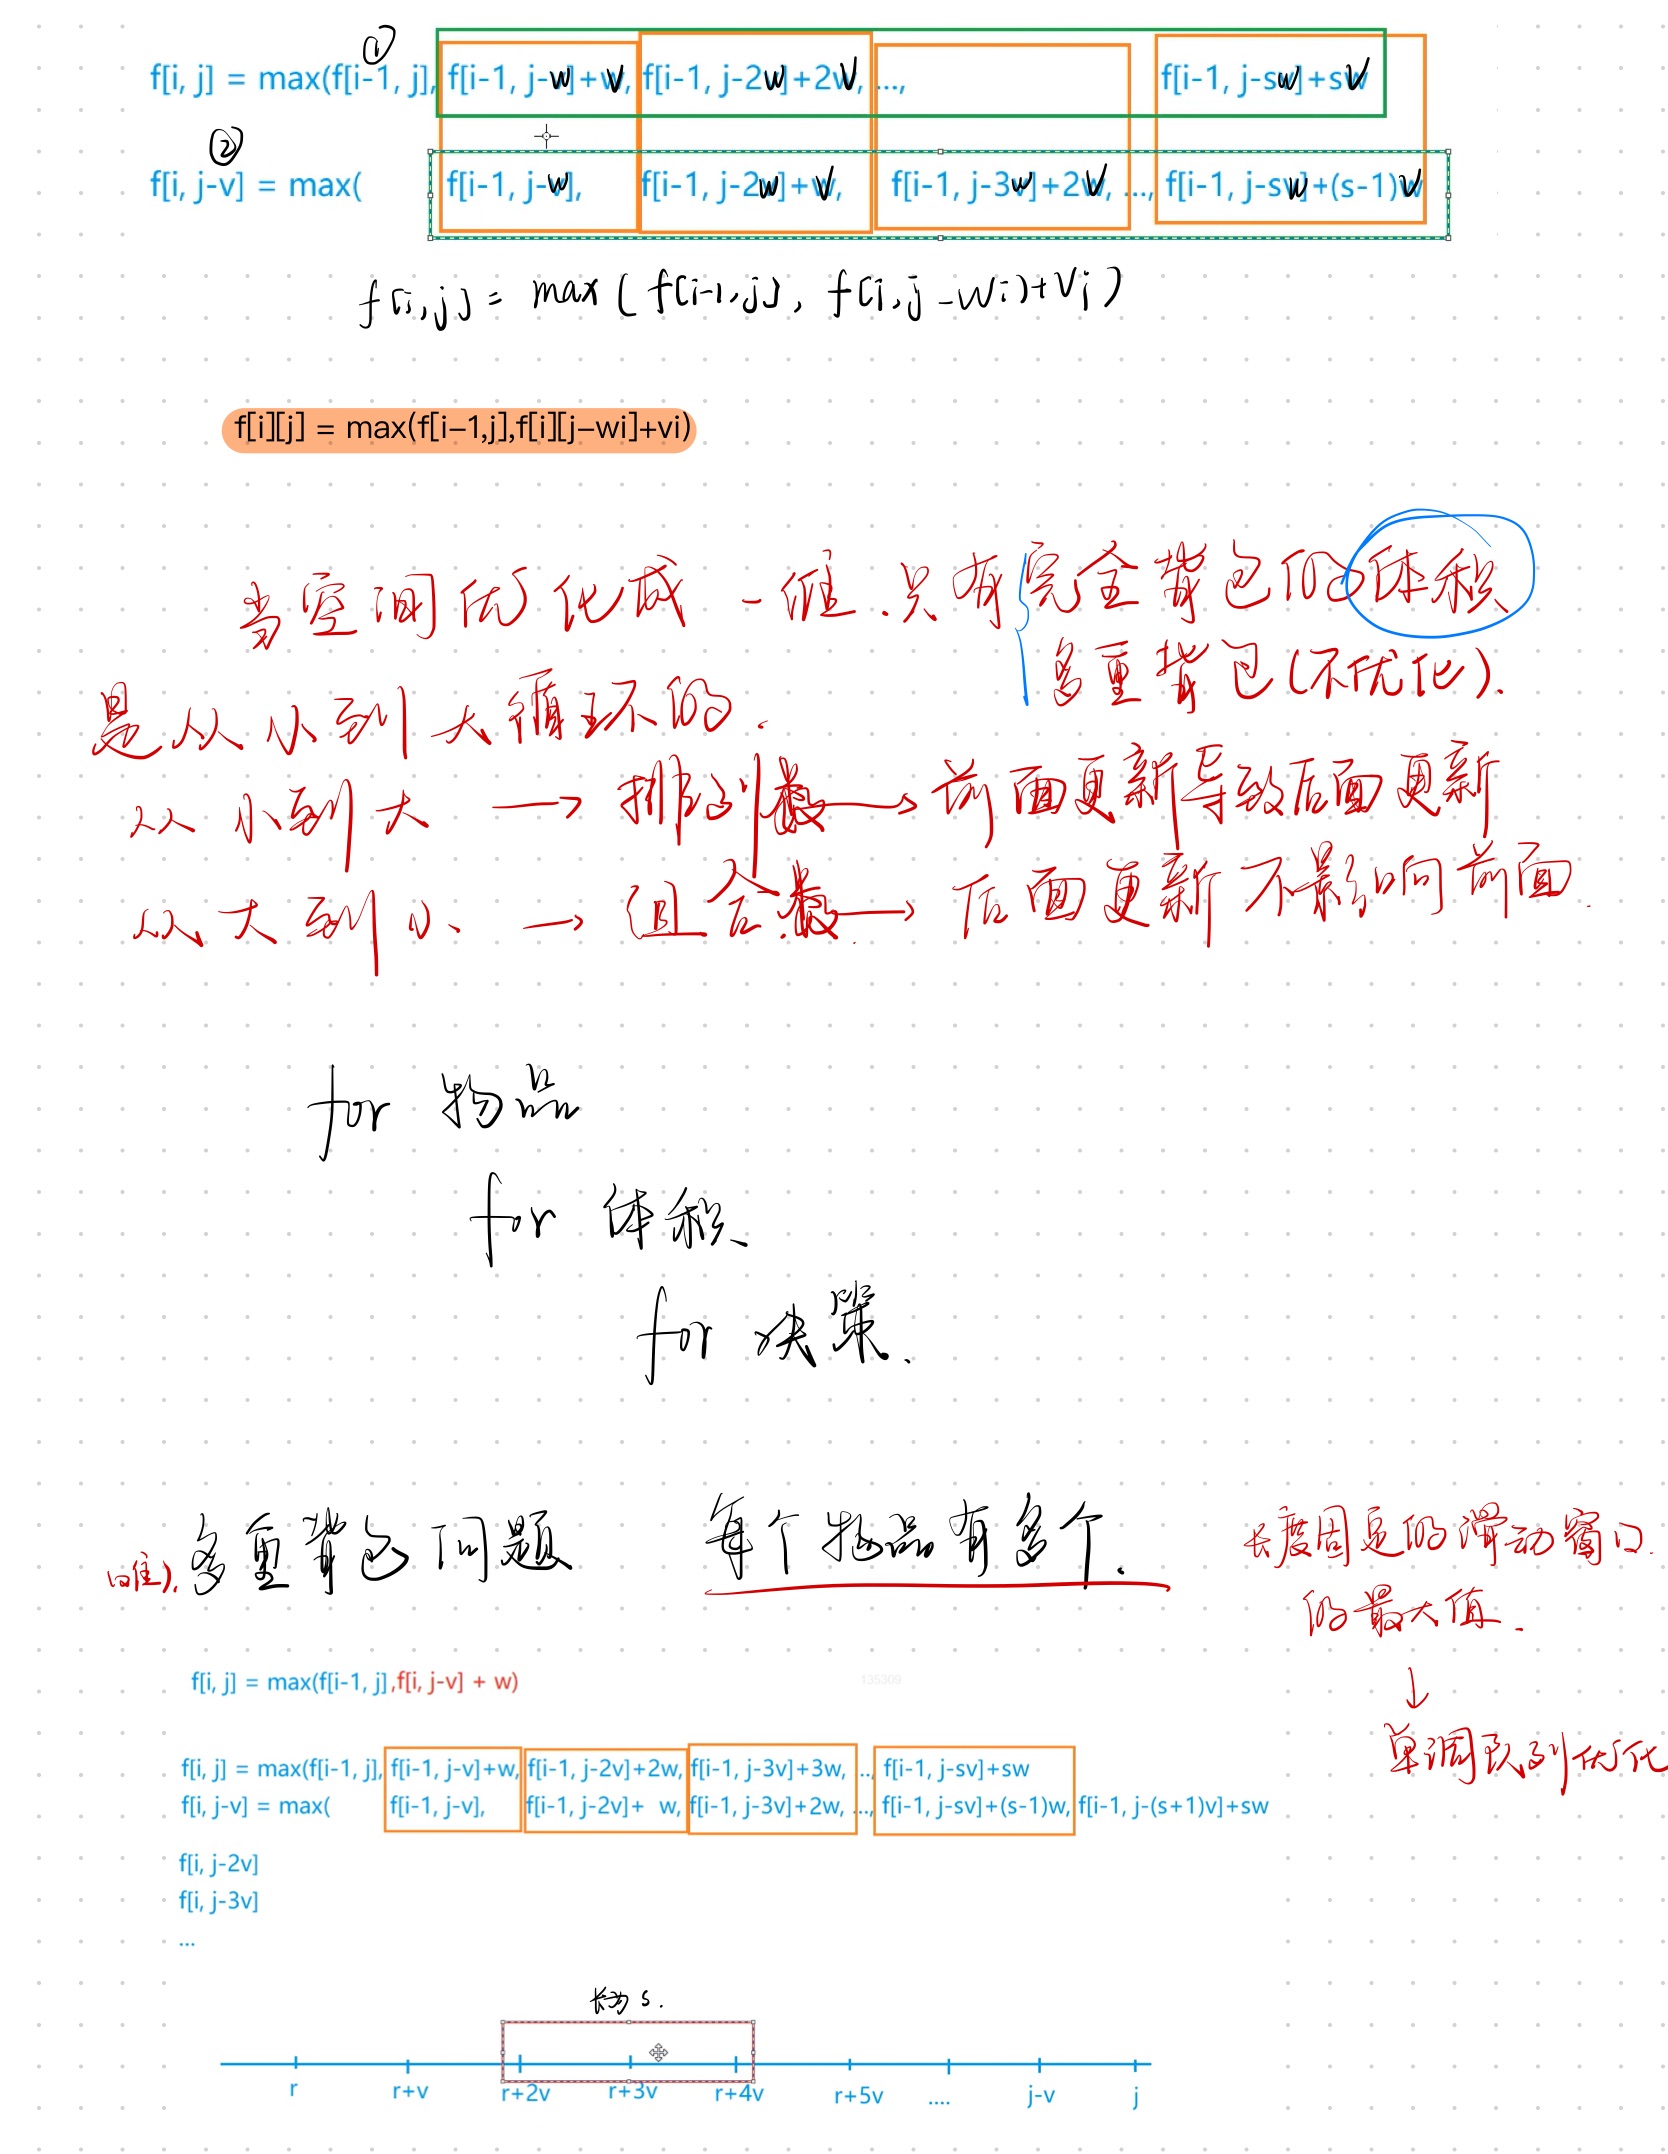 ①
f[i, j] = max(f[i-1, j], f[i-1, j-w]+v, f[i-1, j-2w]+2v, ..., f[i-1, j-sw]+sv
②
f[i, j-v] = max( f[i-1, j-w], f[i-1, j-2w]+v, f[i-1, j-3w]+2v, ..., f[i-1, j-sw]+(s-1)v
f[i,j] = max(f[i-1,j], f[i,j-wi)+vi)
f[i][j] = max(f[i-1,j],f[i][j-wi]+vi)
当空间优化成一维.只有{完全背包的体积
多重背包(不优化).
是从小到大循环的.
从小到大 → 排列数 → 前面更新导致后面更新
从大到小 → 组合数 → 后面更新不影响前面.
for 物品
for 体积
for 决策.
多重背包问题 每个物品有多个.
长度固定的滑动窗口
的最大值.
↓
单调队列优化
f[i, j] = max(f[i-1, j],f[i, j-v] + w)
135309
f[i, j] = max(f[i-1, j], f[i-1, j-v]+w, f[i-1, j-2v]+2w, f[i-1, j-3v]+3w, ..., f[i-1, j-sv]+sw
f[i, j-v] = max( f[i-1, j-v], f[i-1, j-2v]+ w, f[i-1, j-3v]+2w, ..., f[i-1, j-sv]+(s-1)w, f[i-1, j-(s+1)v]+sw
f[i, j-2v]
f[i, j-3v]
...
长为 s.
r r+v r+2v r+3v r+4v r+5v .... j-v j